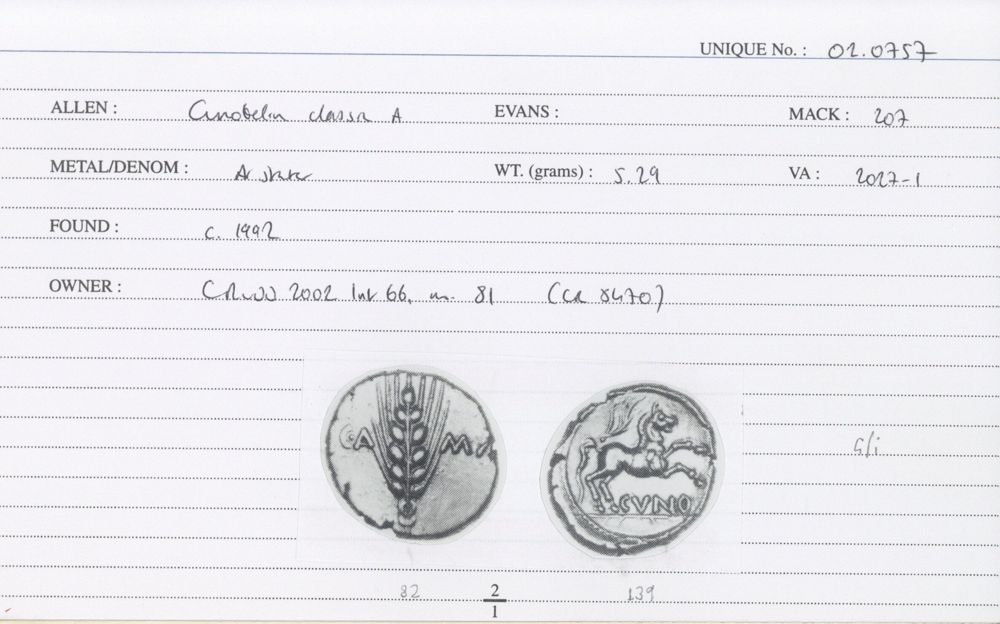 UNIQUE No. : 02.0757
ALLEN : Cunobelin classic A EVANS : MACK : 207
METAL/DENOM : AV stater WT. (grams) : 5.29 VA : 2027-1
FOUND : c. 1992
OWNER : 2002 66, 81 (CR 8470)
CA MV
CVNO
82 2/1 139